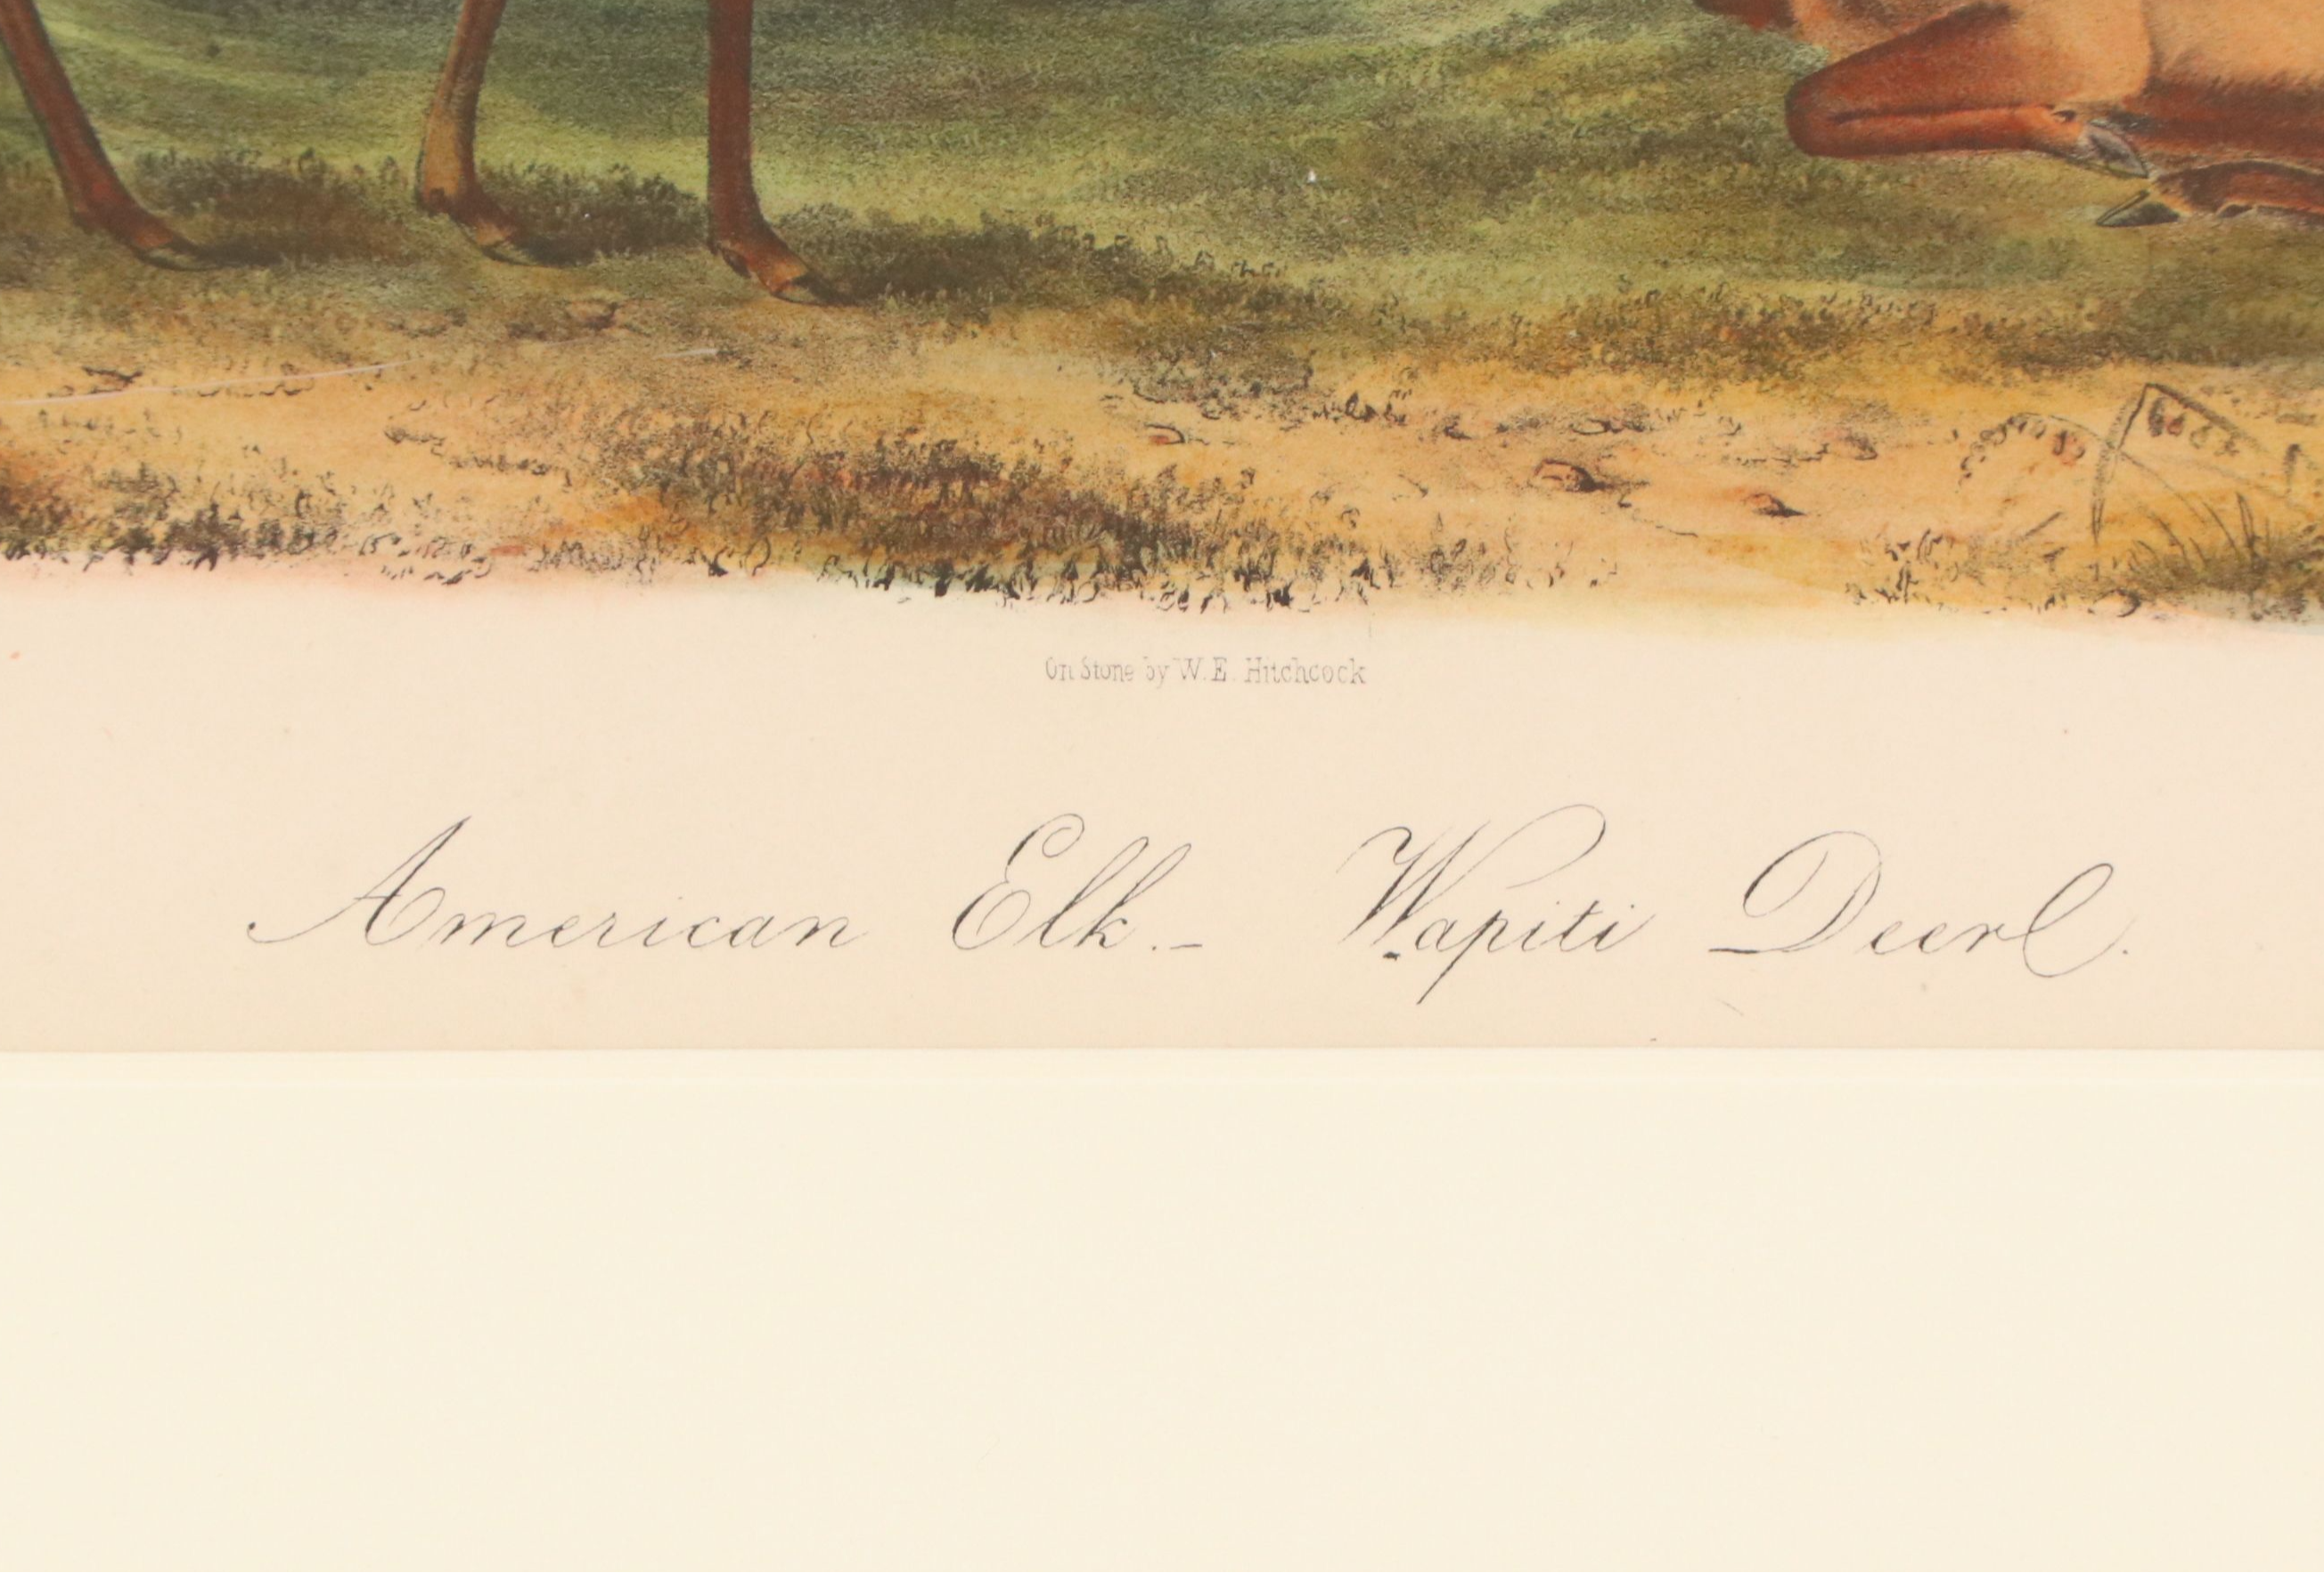 On Stone by W. E. Hitchcock
American Elk. — Wapiti Deer.